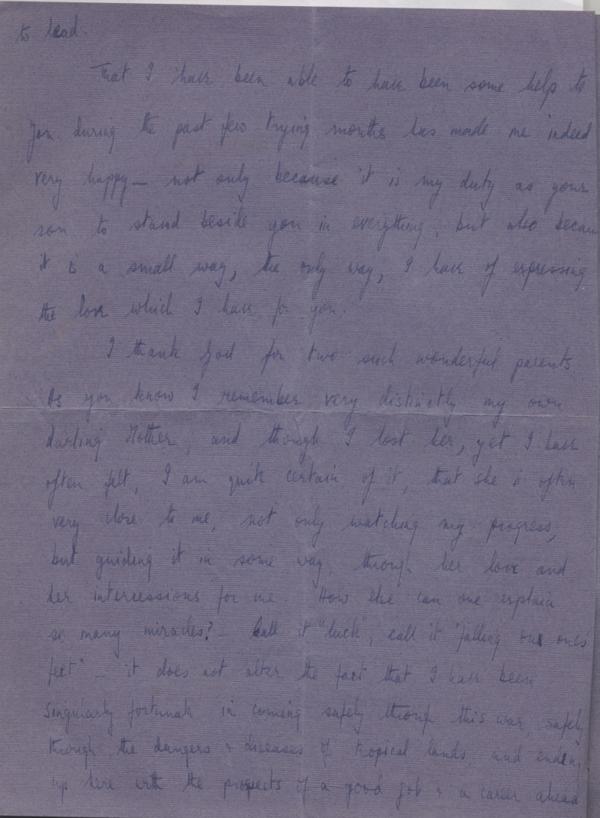 to lead.
That I have been able to have been some help to
you during the past few trying months has made me indeed
very happy — not only because it is my duty as your
son to stand beside you in everything, but also becau
it is a small way, the only way, I have of expressing
the love which I have for you.
I thank God for two such wonderful parents
As you know I remember very distinctly my own
darling Mother, and though I lost her, yet I have
often felt, I am quite certain of it, that she is often
very close to me, not only watching my progress,
but guiding it in some way through her love and
her intercessions for me. How else can one explain
so many miracles? — Call it "luck", call it "falling on ones
feet" — it does not alter the fact that I have been
singularly fortunate in coming safely through this war, safely
through the dangers & diseases of tropical lands and ending
up here with the prospects of a good job & a career ahead